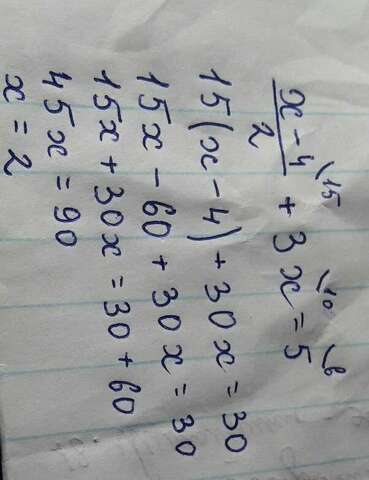 x-4 \15
2 + 3x \10 = 5 \6
15(x-4)+30x=30
15x-60+30x=30
15x+30x=30+60
45x=90
x=2